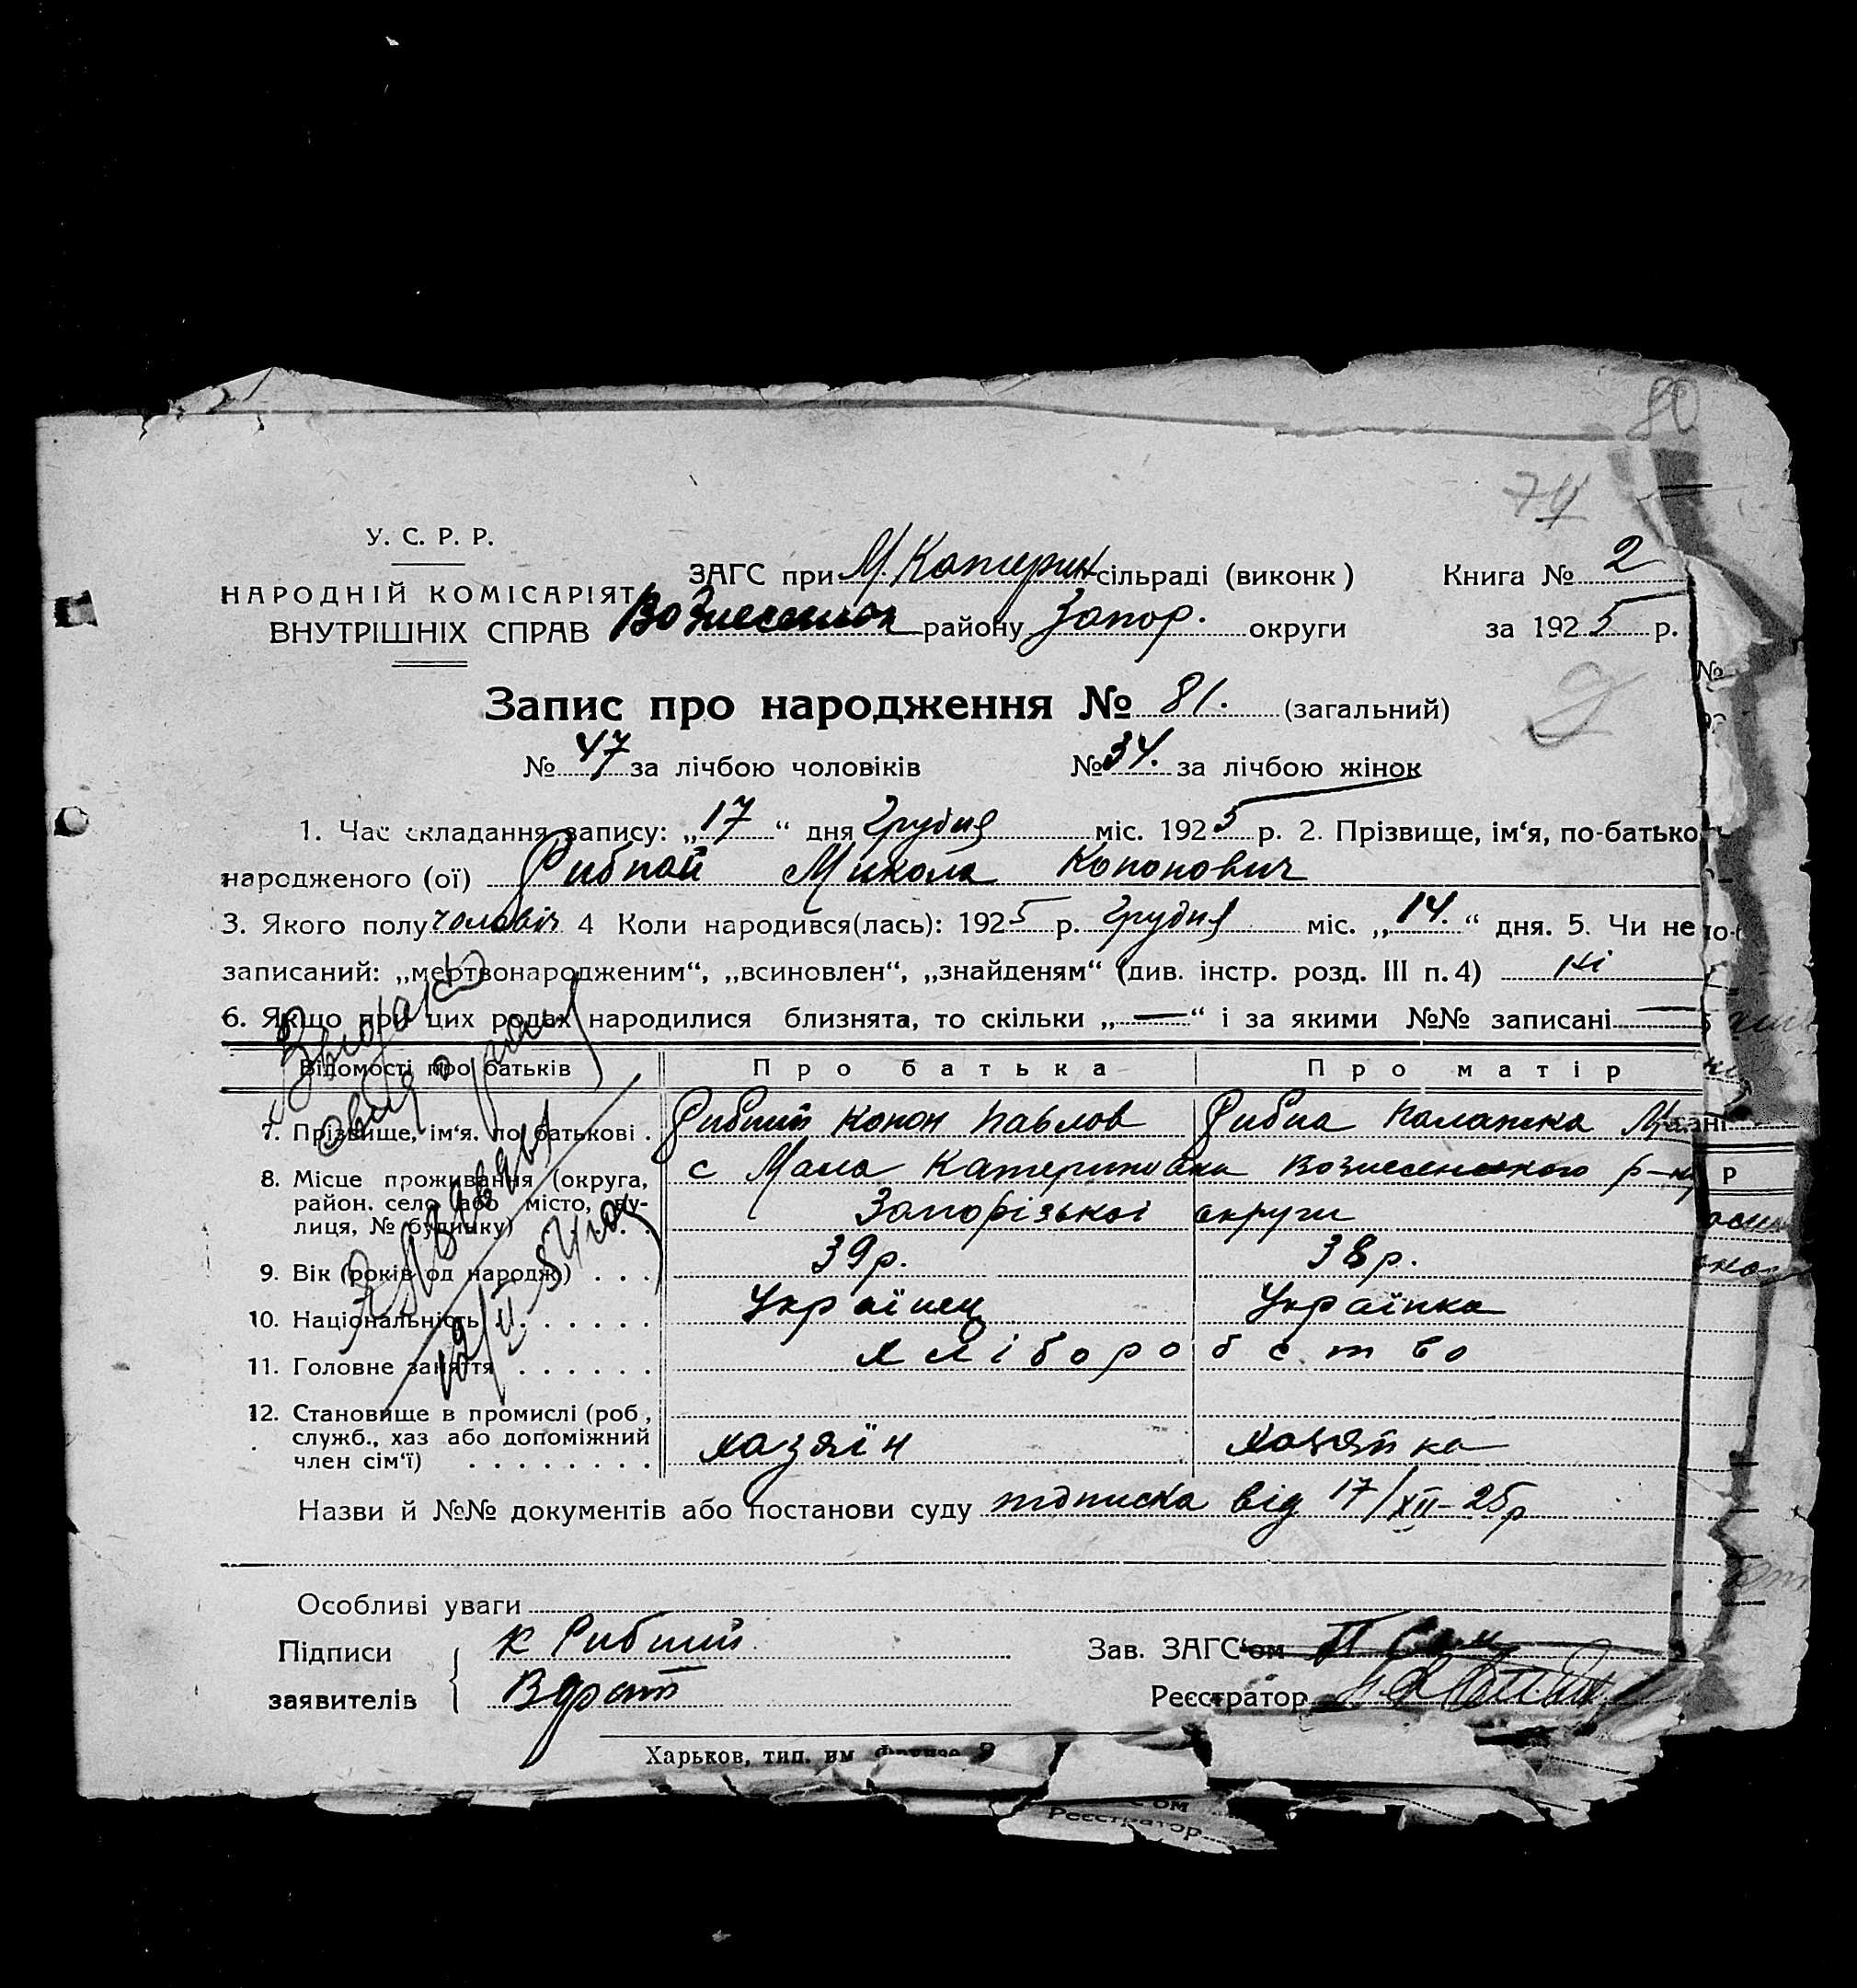 80
74
У. С. Р. Р.
НАРОДНІЙ КОМІСАРІЯТ
ВНУТРІШНІХ СПРАВ
ЗАГС при М Катерин сільраді (виконк)
Книга № 2
Вознесенск району Запор. округи
за 1925 р.
Запис про народження № 81. (загальний)
№ 47 за лічбою чоловіків № 34. за лічбою жінок
1. Час складання запису: „17“ дня Грудня міс. 1925 р. 2. Прізвище, ім‘я, по-батько
народженого (ої) Рибний Микола Кононович
3. Якого полу чоловіч 4 Коли народився(лась): 1925 р. Грудня міс. „14.“ дня. 5. Чи не
записаний: „мертвонародженим“, „всиновлен“, „знайденям“ (див. інстр. розд. III п. 4) Ні
6. Якщо при цих родах народилися близнята, то скільки „—“ і за якими №№ записані
Відомості про батьків Про батька Про матір
7. Прізвище, ім‘я. по батькові . Рибний Конон Павлов Рибна Палажка
8. Місце проживання (округа, с Мала Катеринівка Вознесенського р-ну
район. село або місто, ву- Запорізької округи
лиця, № будинку)
9. Вік (років од народж) . . . 39 р. 38 р.
10. Національність . . . . . . . Українец Українка
11. Головне заняття . . . . . . хліборобство
12. Становище в промислі (роб,
служб., хаз або допоміжний хазяїн хазяйка
член сім‘ї) . . . . . . . .
Назви й №№ документів або постанови суду підписка від 17/XII-25р
Особливі уваги
Підписи К Рибний
заявителів
Зав. ЗАГС‘ом
Реєстратор
Харьков, тип. им Фрунзе
Реєстратор